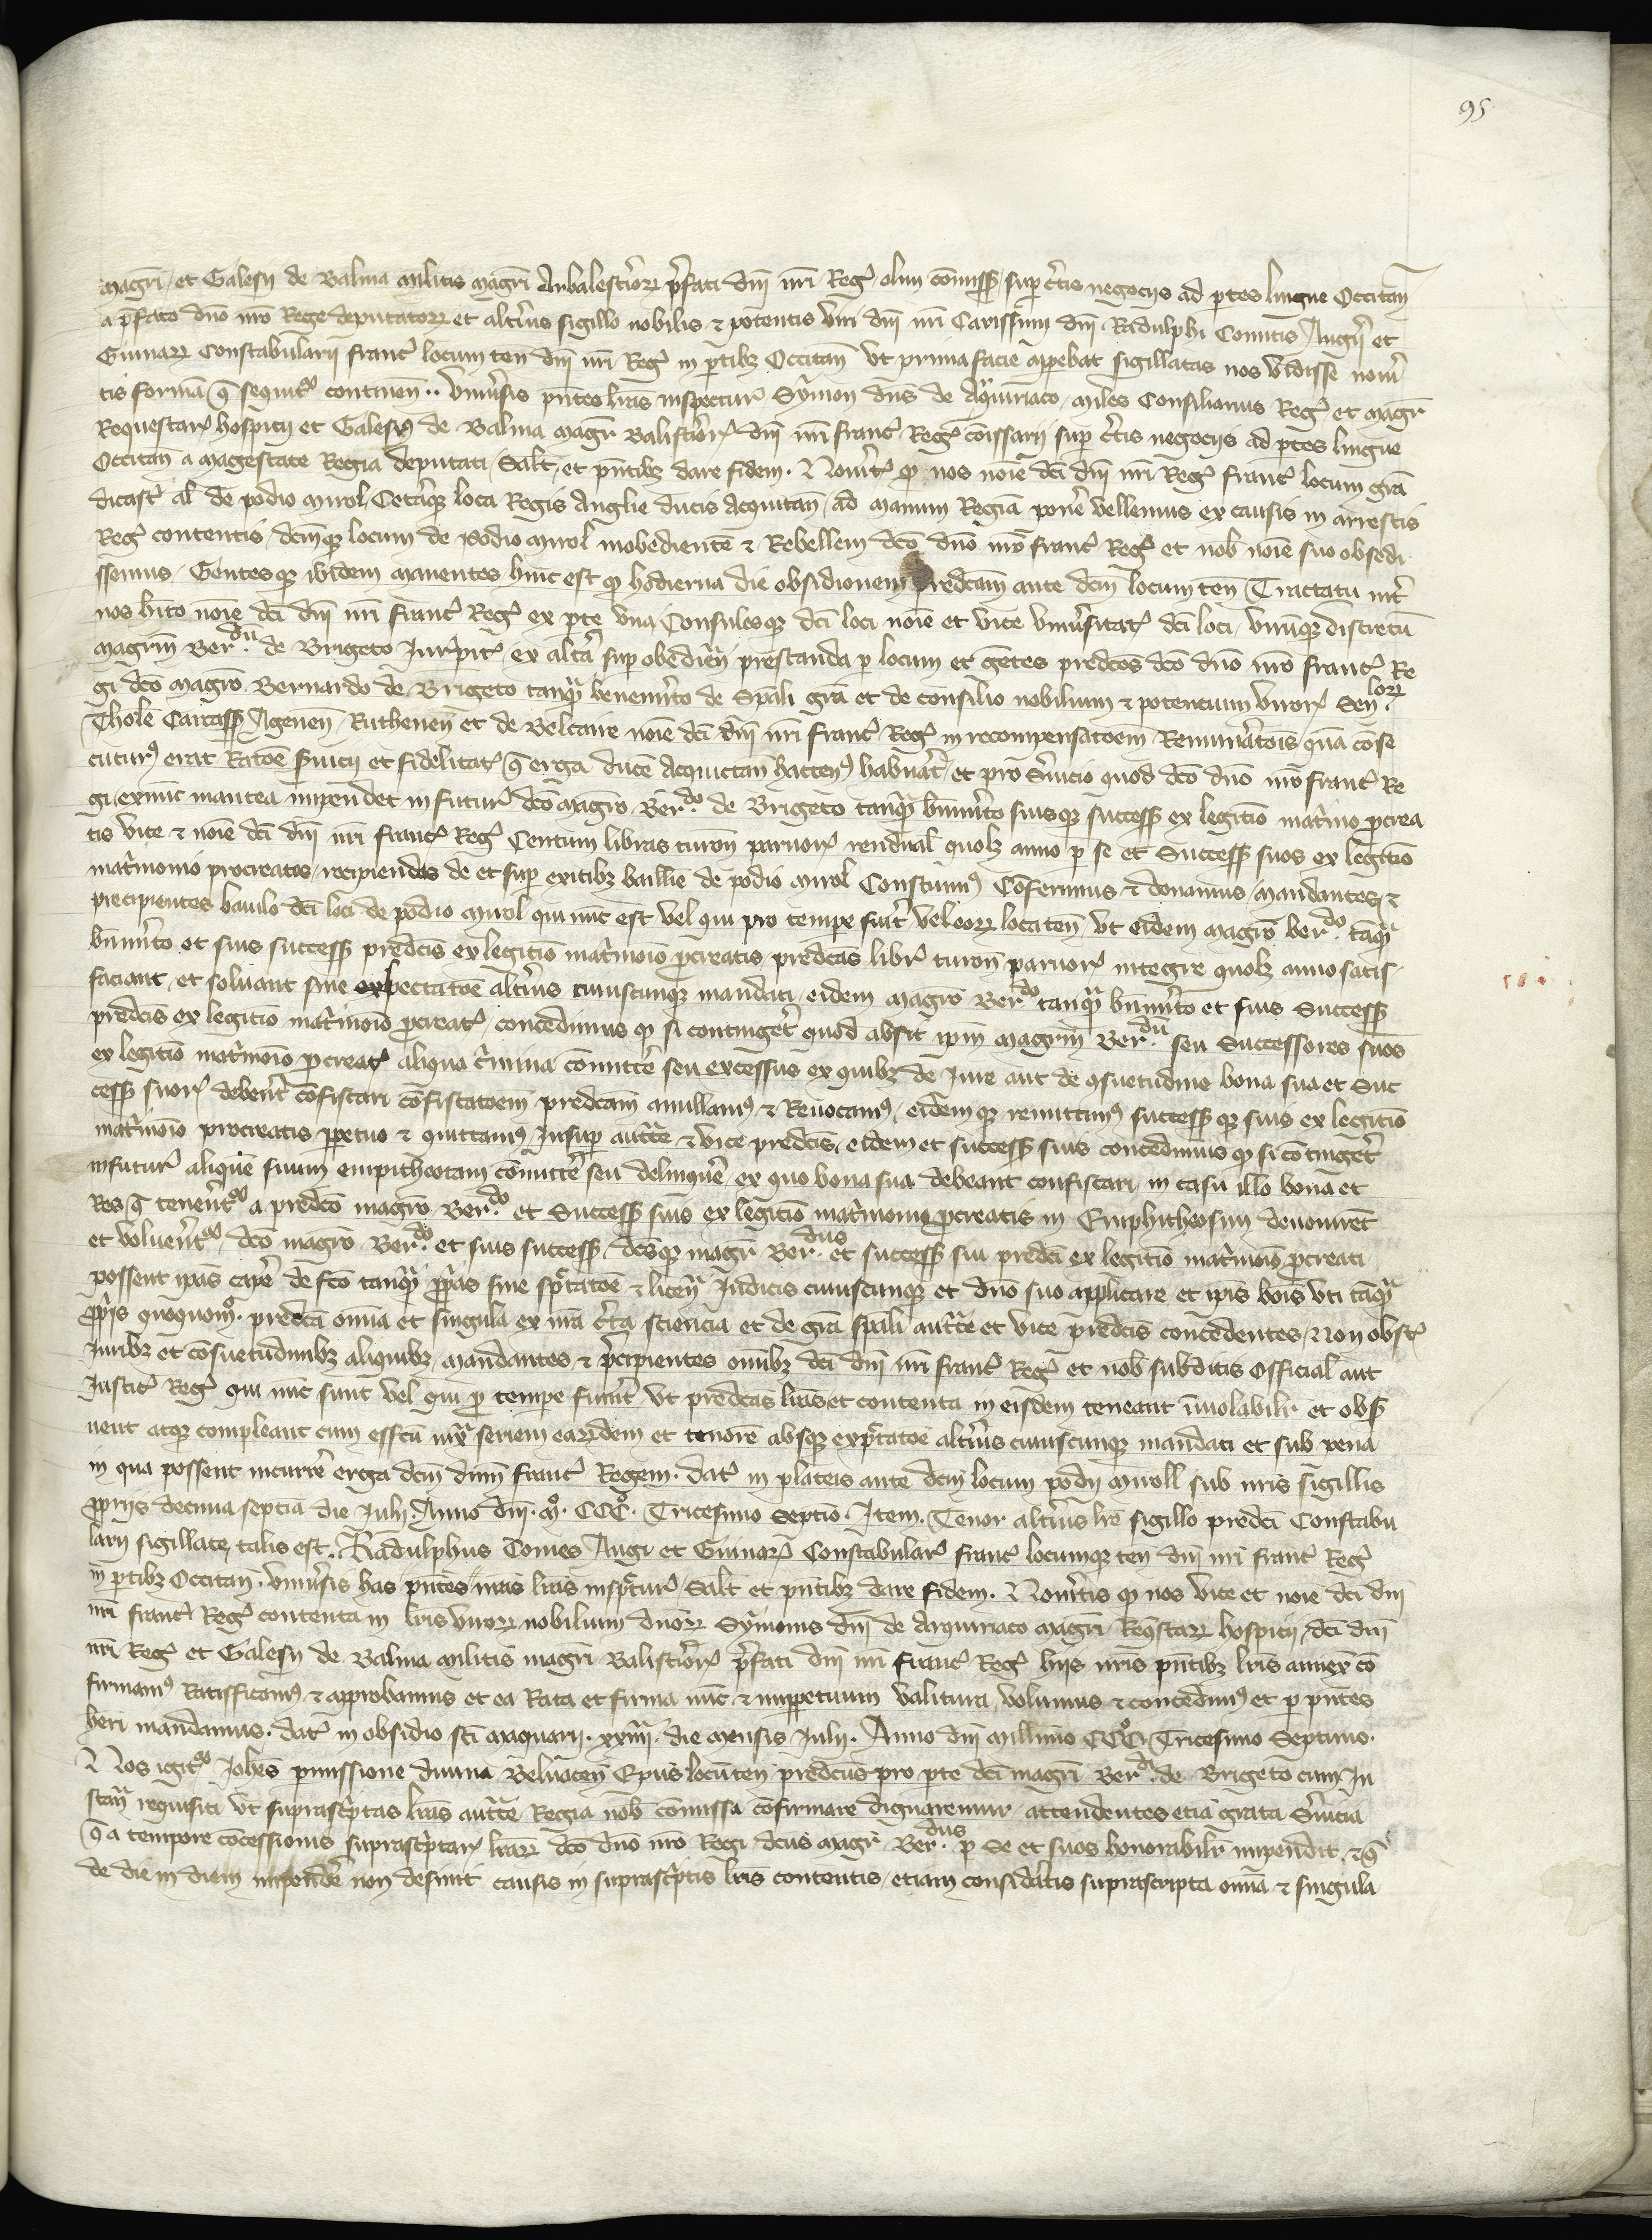 95
magr̃i et Galesij de Balma militis magr̃i Arbalestr̃iorꝝ p̃fati dñi nr̃i Reg̃ olim cõmiss̃ sup c̃tis negocijs ad p̃tes lingue Occitañ
a p̃fato dño nr̃o Rege deputatorꝝ et alt̃ius sigillo nobilis ⁊ potentis viri dñi nr̃i Carissimi dñi Radulphi Comitis Augij et
Guinarꝝ Constabularij franc̃ locum teñ dñi nr̃i Reg̃ in p̃tibꝫ Occitañ ut prima facie apebat sigillatas nos vidisse nov̾i
tis formã q̃ sequit᷑ continen .. Univ̾sis p̃ntes lr̃as inspectur̃ Symon dñs de Arquiriaco miles Consiliarius Reg̃ et magr̃
Requestarꝝ hospicij et Galesius de Balma magr̃ Balistr̃iorꝝ dñi nr̃i franc̃ Reg̃ cõissarij sup c̃tis negocijs ad p̃tes lingue
Occitañ a magestate Regia deputati Salt̃ et p̃ntibꝫ dare fidem . Nov̾it̃ ꝙ nos noĩe dc̃i dñi nr̃i Reg̃ franc̃ locum grã
dicast̃ al̃ de podio mirol Cet̾aqꝫ loca Regis Anglie ducis Acquitañ ad manum Regiã pon̾e vellemus ex causis in arrestis
Reg̃ contentis dc̃mqꝫ locum de podio mirol inobedientẽ ⁊ Rebellem dc̃o dño nr̃o franc̃ Reg̃ et nob̃ noĩe suo obsedi
ssemus Gentesqꝫ ibidem manentes hinc est ꝙ hodierna die obsidionem predc̃am ante dc̃m locum teñ Tractatu int̾
nos hĩto noĩe dc̃i dñi nr̃i franc̃ Reg̃ ex p̃te una Consulesqꝫ dc̃i loci noĩe et vice univ̾sitat̃ dc̃i loci virũqꝫ discretũ
magr̃m Ber.dũ de Brigeto Jur̃pit̃ ex alt̾a sup obedĩen prestanda p locum et gẽtes predc̃os dc̃o dño nr̃o franc̃ Re
gi dc̃o magr̃o Bernardo de Brigeto tanq̃ benem̾ito de sp̃ali grã et de consilio nobilium ⁊ potentium virorꝝ Sen.lorꝝ
Tholẽ Carcass̃ Ageneñ Rutheneñ et de Belcaire noĩe dc̃i dñi nr̃i franc̃ Reg̃ in recompensatõem Remun̾atõis quã cõse
cuturꝰ erat Ratõe s̾vicij et fidelitat̃ q̃ erga ducẽ Acquictañ hactenꝰ habuat̃ et pro s̾vicio quod dc̃o dño nr̃o franc̃ Re
gi exnunc inantea impendet in futur̃ dc̃o magr̃o Ber.do de Brigeto tanq̃ bñm̾ito suisqꝫ success̃ ex legitĩo matr̃ĩo p̃crea
tis vice ⁊ noĩe dc̃i dñi nr̃i franc̃ Reg̃ Centum libras turoñ parvorꝝ rendual̃ quolꝫ anno p se et Success̃ suos ex legitĩo
matr̃imonio procreatos recipiendas de et sup exitibꝫ baillie de podio mirol Constituimꝰ Cõferimus ⁊ donamus mandantes ⁊
precipientes baiulo dc̃i loci de podio mirol qui nũc est vel qui pro tempe fu̾it vel eorꝝ locateñ ut eidem magr̃o ber.do tãq̃
bñm̾ito et suis success̃ predc̃is ex legitĩo matr̃ĩoĩo p̃creatis predc̃as libr̃ turoñ parvorꝝ integre quolꝫ anno satis
faciant et solvant sine expectatõe alt̾ius cuiuscunqꝫ mandati eidem magr̃o Ber.do tanq̃ bñm̾ito et suis Success̃
predc̃is ex legitĩo matr̃ĩoĩo p̃creat̃ concedimus ꝙ si conting̾et quod absit ip̃m magr̃m Ber.dũ seu Successores suos
ex legitĩo matr̃ĩoĩo p̃creat̃ aliqua c̾mina cõmitt̾e seu excessus ex quibꝫ de Jure aut de ꝯsuetudine bona sua et Suc
cess̃ suorꝝ deb̾ent cõfiscari cõfiscatõem predc̃am anullamꝰ ⁊ Revocamꝰ eidemqꝫ remittimꝰ success̃qꝫ suis ex legitĩo
matr̃ĩoĩo procreatis ppetuo ⁊ quittamꝰ Insup auc̃te ⁊ vice predc̃is eidem et success̃ suis concedimus ꝙ si cõting̾et
in futur̃ aliquẽ suum empitheotam cõmitt̾e seu delinqu̾e ex quo bona sua debeant confiscari in casu illo bona et
Res q̃ tenent᷑ a predc̃o magr̃o Ber.do et Success̃ suis ex legitĩo matr̃imonio p̃creatis in Emphitheosim devenirẽt
et volvent᷑ dc̃o magr̃o Ber.do et suis success̃ dc̃usqꝫ magr̃ Ber.dus et success̃ sui predc̃i ex legitĩo matr̃ĩoĩo p̃creati
possent ip̃as cap̾e de fc̃o tanq̃ pp̃as sine sp̃tatõe ⁊ licen̾ Judicis cuiuscunqꝫ et dño suo applicare et ip̃is boĩs uti tãq̃
pp̃is quoquomº. predc̃a om̃ia et singula ex nr̃a c̾ta sciencia et de grã sp̃ali auc̃te et vice predc̃is concedentes Non obst̃
Juribꝫ et cõsuetudinibꝫ aliquibꝫ mandantes ⁊ p̃cipientes om̃ibꝫ dc̃i dñi nr̃i franc̃ Reg̃ et nob̃ subditis Official̃ aut
Justic̃ Reg̃ qui nũc sunt vel qui p tempe fu̾int ut predc̃as lr̃as et contenta in eisdem teneant ĩviolabilr̃ et obs̾
vent atqꝫ compleant cum effc̃u iux̃ seriem earũdem et tenorẽ absqꝫ exp̃tatõe alt̾ius cuiuscunqꝫ mandati et sub pena
in qua possent incurr̾e erga dc̃m dñm franc̃ Regem . dat̃ in plateis ante dc̃m locum podij miroll sub nr̃is sigillis
pp̃rijs decima septĩa die Julij . Anno dñi . mº. CCCº. Tricesimo septĩo . Item . Tenor alt̾ius lr̃e sigillo predc̃i Constabu
larij sigillate talis est . Radulphus Comes Augi et Guinarꝝ Constabular̃ franc̃ locumqꝫ teñ dñi nr̃i franc̃ Reg̃
in p̃tibꝫ Occitañ . Univ̾sis has p̃ntes nr̃as lr̃as insp̃tur̃ Salt̃ et p̃ntibꝫ dare fidem . Nov̾itis ꝙ nos vice et noĩe dc̃i dñi
nr̃i franc̃ Reg̃ contenta in lr̃is virorꝝ nobilium dñorꝝ Symonis dñi de Arquiriaco magr̃i Reqũstarꝝ hospicij dc̃i dñi
nr̃i Reg̃ et Galesij de Balma militis magr̃i Balistr̃iorꝝ p̃fati dñi nr̃i franc̃ Reg̃ hijs nr̃is p̃ntibꝫ lr̃is annex̃ cõ
firmamꝰ Ratifficamꝰ ⁊ approbamus et ea Rata et firma nũc ⁊ imppetuum valitura volumus ⁊ concedimꝰ et p p̃ntes
heri mandamus . dat̃ in obsidio sc̃i maquarij . xxiiij. die mensis Julij . Anno dñi millĩmo CCCº Tricesimo Septimo .
Nos igit᷑ Joh̃es p̾missione divina Belvaceñ Ep̃us locũteñ predc̃us pro p̃te dc̃i magr̃i Ber.di de Brigeto cum In
stan̾ requisiti ut suprasc̾ptas lr̃as auc̃te Regia nob̃ cõmissa cõfirmare dignaremur attendentes etiã grata s̾vicia
q̃ a tempore cõcessionis suprasc̾ptarꝝ lr̃arꝝ dc̃o dño nr̃o Regi dc̃us magr̃ Ber.dus p se et suos honorabilr̃ impendit ⁊ q̃
de die in diem impend̾e non desinit causis in suprasc̾ptis lr̃is contentis etiam considatis suprascripta om̃ia ⁊ singula